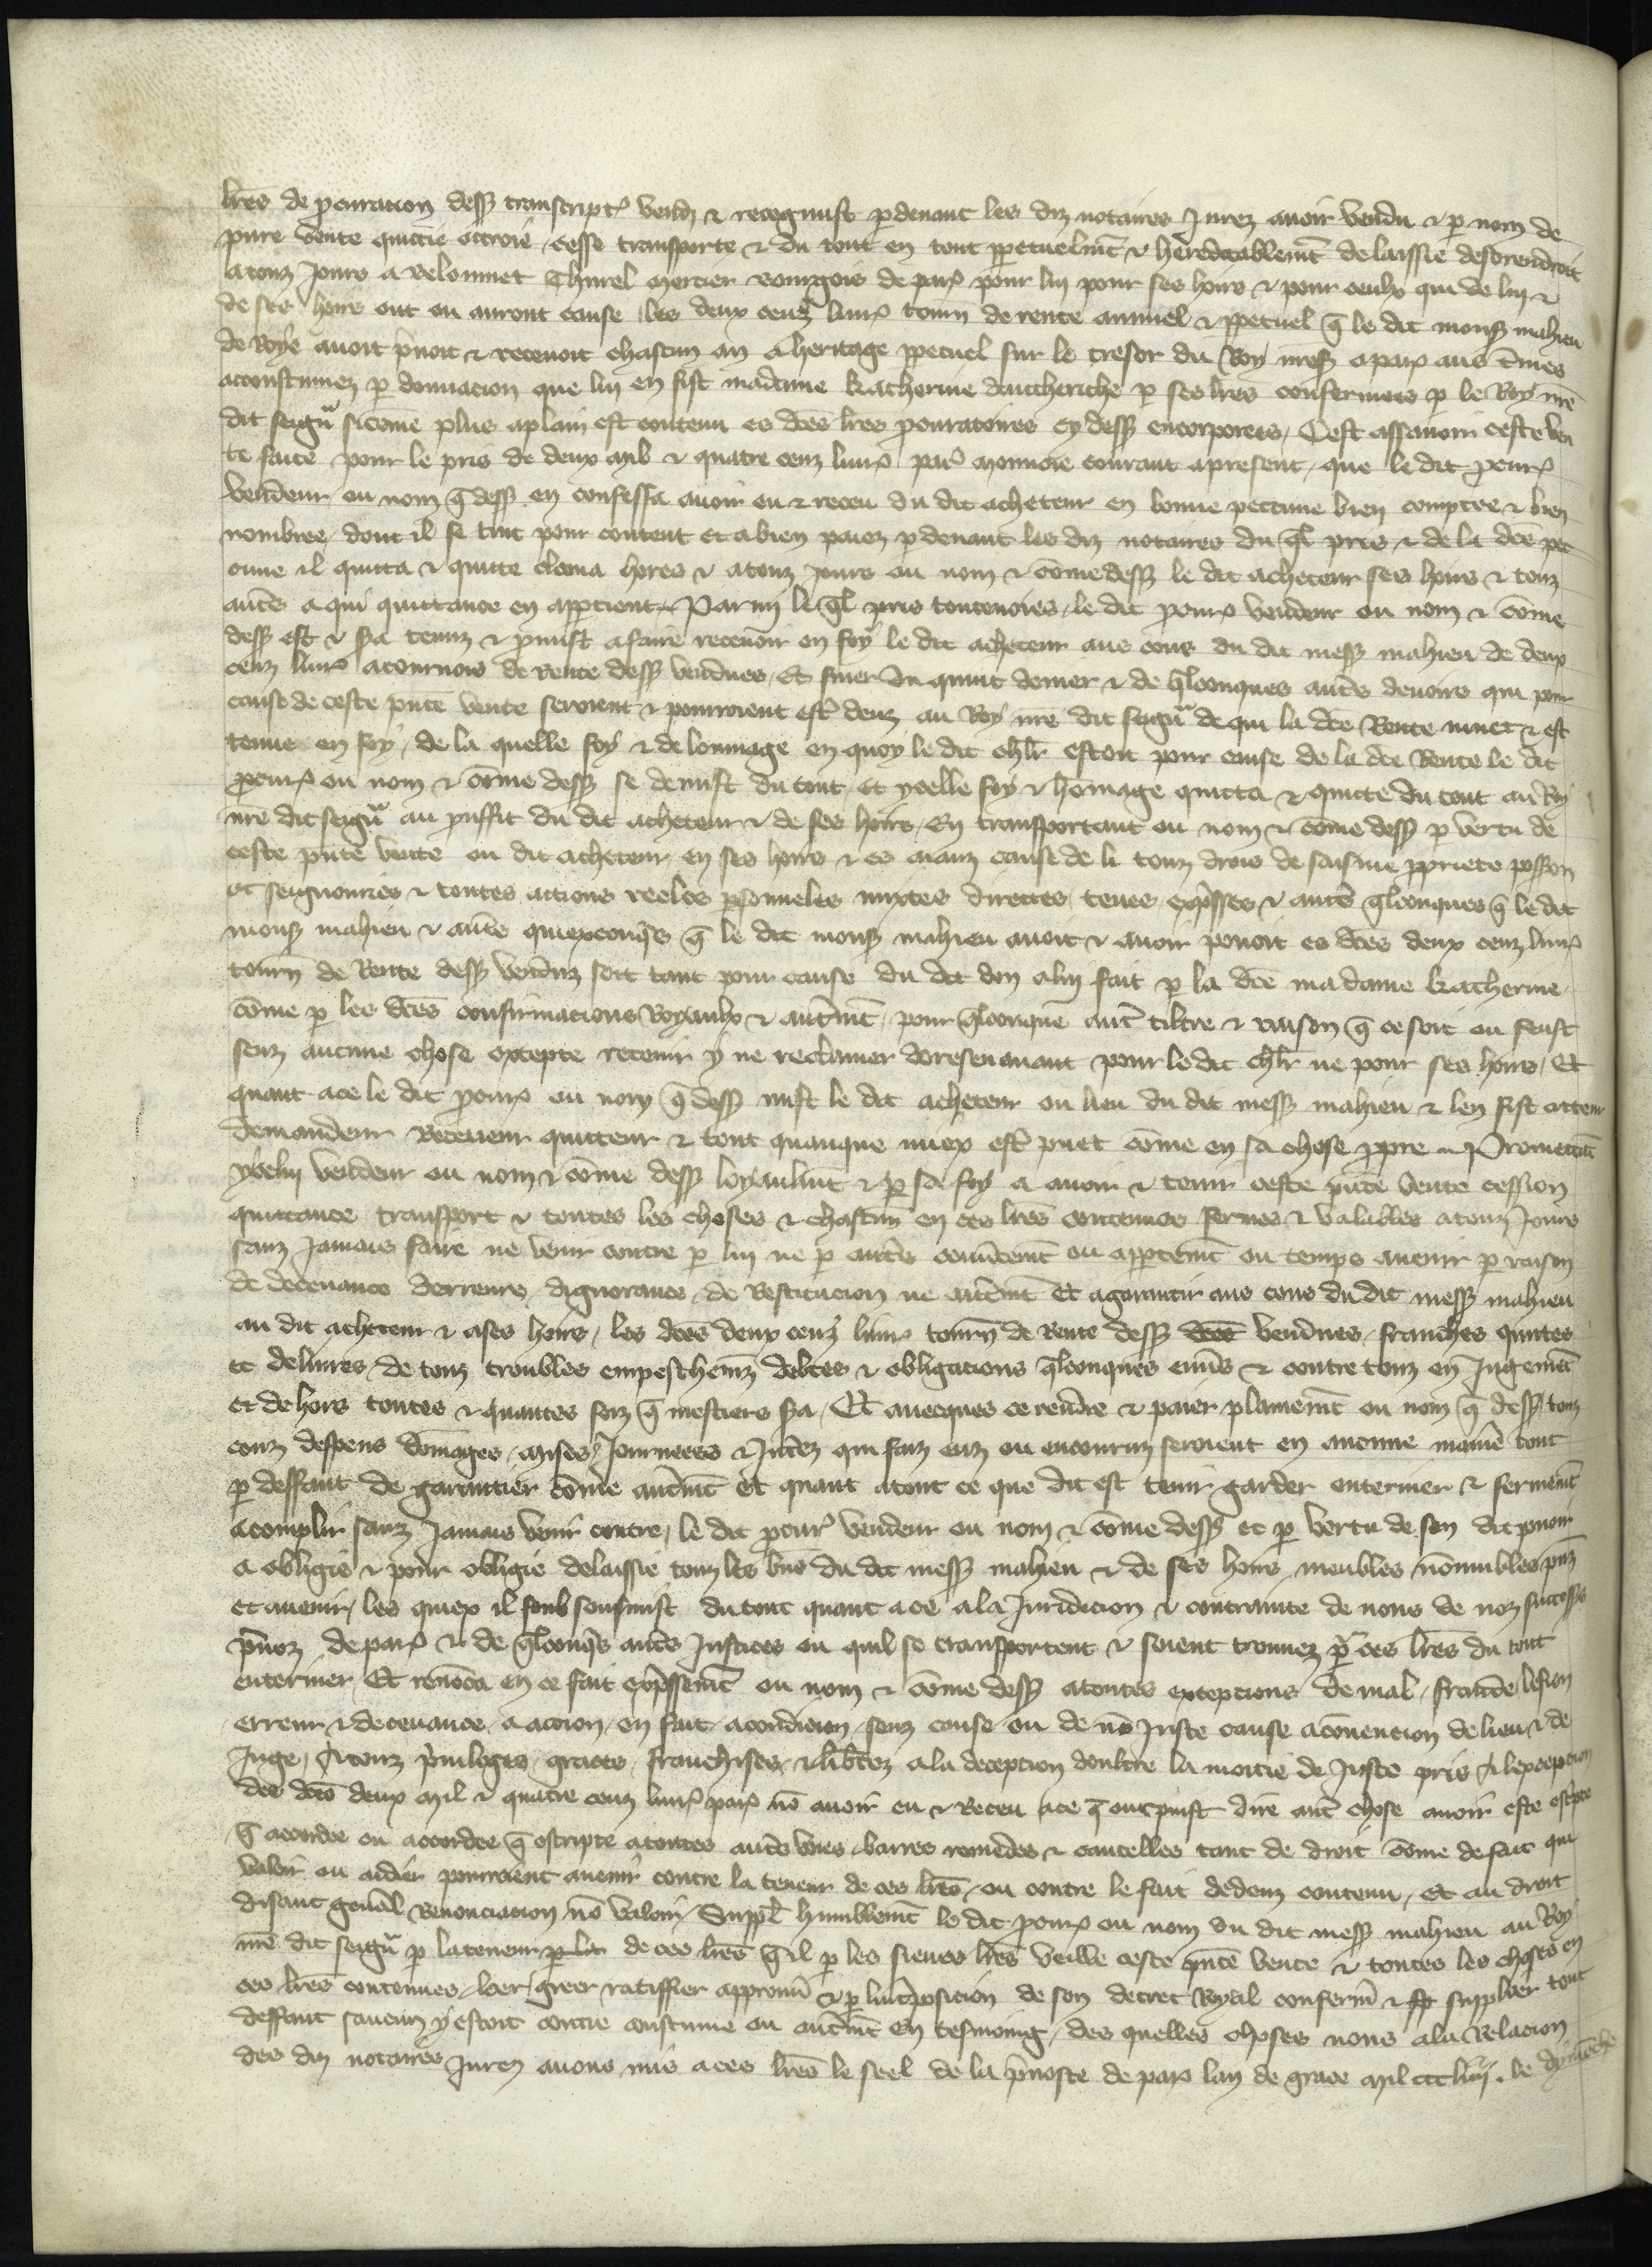 lres de procuracion dess transcriptes vendi & recognust pdevant les diz notaires Jurez avoir vendu & p nom de
pure vente quictie octroie cesse transporte & du tout en tout ppetuelmt & hereditablemt delaissie desorendroit
a touz Jours a Belonnet Thurel mercier bourgois de par pour lui pour ses hoirs & pour ceulx qui de lui &
de ses hoirs ont ou auront cause les deux cenz livr tourn de rente annuel & ppetuel q le dit mons mahieu
de Roye avoit pnoit & recevoit chascun an a heritage ppetuel sur le tresor du Roy nress a par aus tmes
acoustumez p donnacion que lui en fist madame katherine dautheriche p ses lres confermees p le Roy nre
dit seigr sicome plus aplain est contenu es dces lres procuratoires cy dess encorporees / Cest assavoir ceste ven
te faite pour le pris de deux mil & quatre cenz livr par monnoie courant apresent / que le dit procur
vendeur ou nom q dess en confessa avoir eu & receu du dit acheteur en bonne peccune bien comptee & bien
nombree / dont il se tint pour content et a bien paiez pdevant les diz notaires du ql pris & de la dce pec
cune il quitta & quitte clama hores & a touz jours ou nom & come dess le dit acheteur ses hoirs & touz
autres a qui quittance en appartient / Parmi le ql pris toutevoies / le dit procur vendeur ou nom & come
dess est & sera tenuz & pmist afaire recevoir en foy le dit acheteur aus cous du dit mess mahieu de deux
cenz livr a tournois de Rente dess vendues / Et finer du quint denier & de qlconques autres devoirs qui pour
cause de ceste pnte vente seroient & pourroient estre deuz au Roy nre dit seigr de qui la dce Rente muet & est
tenue en foy / de la quelle foy & de lommage en quoy le dit chlr estoit pour cause de la dce Rente le dit
procur ou nom & come dess se demist du tout / et ycelle foy & homage quitta & quitte du tout au Roy
nre dit seigr au prouffit du dit acheteur & de ses hoirs / En transportant ou nom & come dess p vertu de
ceste pnte vente ou dit acheteur en ses hoirs & es aianz cause de li touz drois de saisine ppriete possession
et seignouries & toutes actions reeles psonneles mixtes directes / teues expsses & autres qlconques q le dit
mons mahieu & autres quiexconqs q le dit mons mahieu avoit & avoir povoit es dces deux cenz livr
tourn de Rente dess venduz soit tant pour cause du dit don alui fait p la dce madame katherine
come p les dces confirmacions Royaulx & autremt / pour qlconque autre tiltre & raison q ce soit ou feust
senz aucune chose excepte retenir y ne reclamer doresenavant pour le dit chlr ne pour ses hoirs / Et
quant a ce le dit procur ou nom q dess mist le dit acheteur ou lieu du dit mess mahieu & len fist acteur
demandeur Receveur quitteur & tout quanque miex estre puet come en sa chose ppre / Promettant
ycelui vendeur ou nom & come dess loyaulmt & p sa foy a avoir & tenir ceste pnte vente cession
quittance transport & toutes les choses & chascune en ces lres contenues fermes & valables a touz Jours
sanz Jamais faire ne venir contre p lui ne p autres couvtemt ou appertemt ou temps avenir p raison
de decevance derreurs / dignorance / de Restitucion ne autremt Et agarantir aus cous du dit mess mahieu
au dit acheteur & a ses hoirs / les dces deux cenz livr tourn de Rente dess vendues / franches quittes
et delivres de touz troubles empeschemz debtes & obligacions qlconques envs & contre touz en Jugemt
et dehors toutes & quantes foiz q mestiers sera / Et avecques ce rendre & paier plainemt ou nom q dess touz
couz despens domages / mises Journeees & Intez qui faiz euz ou encouruz seroient en aucune manie tout
p deffaut de garantier come autremt Et quant a tout ce que dit est tenir garder enteriner & fermemt
acomplir sanz Jamais venir contre / le dit procur vendeur ou nom & come dess et p vertu de son dit povoir
a obligie & pour obligie delaissie touz les bns du dit mess mahieu & de ses hoirs meubles nonmeubles pnz
et avenir / les quiex il sousmist du tout quant a ce a la Juridicion & contrainte de nous de noz successrs
pvoz de par & de qlconqs autres Justices ou quil se transportent & soient trouvez pr ces lres du tout
enteriner Et renonca en ce fait expssemt ou nom & come dess a toutes excepcions de mal / fraude lesion
erreur & decevance a accion / en fait / a condicion / senz cause ou de no Juste cause a convencion de lieu & de
Juge / A touz pvileges / graces / franchises & libtez a la decepcion doultre la moitie de Juste pris A lexcepcion
des dces deux mil & quatre cenz livr par no avoir eu & Receu / a ce q on puist dire autre chose avoir este escripte
q acordee ou accordee q escripte a toutes autres voies / barres remedes & cautelles tant de droit come de fait qui
valoir ou aidier pourroient avenir contre la teneur de ces lres / ou contre le fait dedenz contenu / et au droit
disant genal Renonciacion no valoir / Suppl humblemt le dit procur ou nom du dit mess mahieu au Roy
nre dit seigr p la teneur de ces lres qil p les sienes lres veille ceste pnte vente & toutes les choses en
ces lres contenues / loer / greer ratiffier approuv & p linteposicion de son decret Royal conferm & supploier tout
deffaut saucun y estoit contre coustume ou autremt En tesmoing / des quelles choses nous a la Relacion
des diz notaires Jurez avons mis a ces lres le seel de la pvoste de par lan de grace mil ccc liiij . le dymenche